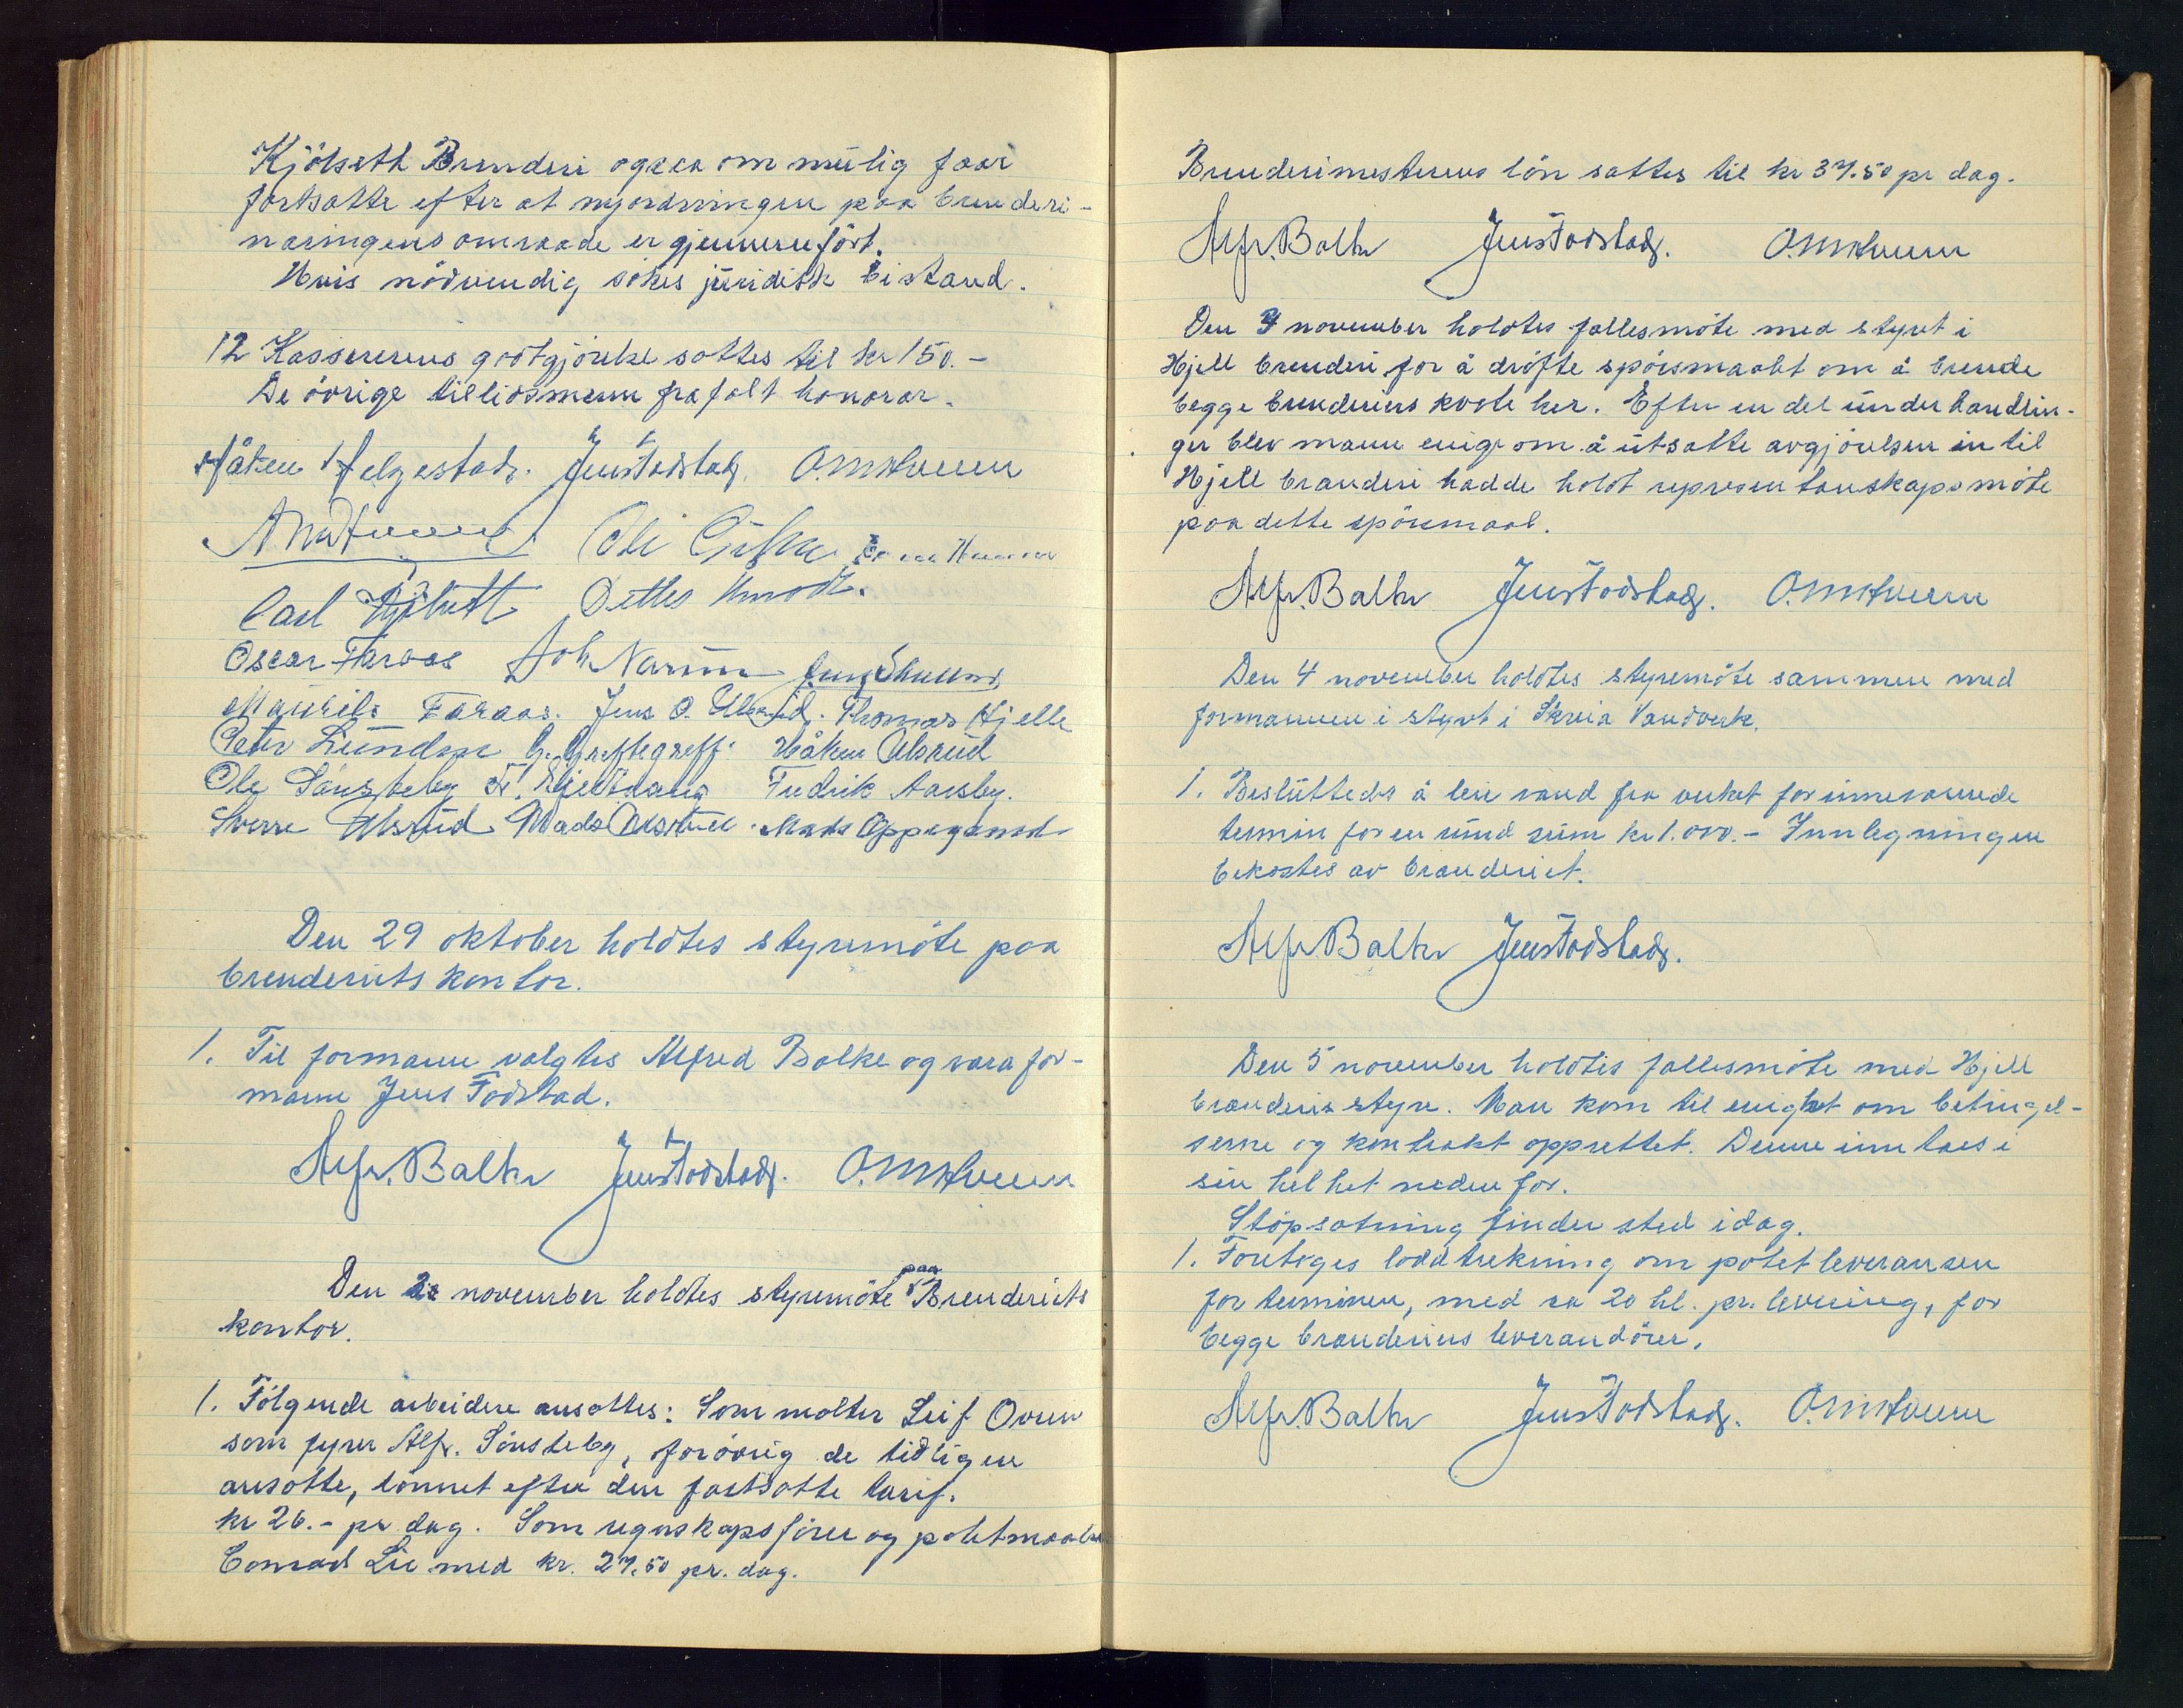 Kjölseth Brenderi ogsaa om mulig faar
fortsætte efter at nyordningen paa brenderi-
næringens omraade er gjennemfört.
Hvis nödvendig sökes juridisk bistand.
12 Kassererens godtgjörelse sættes til kr 150.-
De övrige tillidsmenn frafalt honorar.
Håken Helgestad. Jens Fodstad. O.M. Hveem
Ole
Carl Kjölseth
Oscar Faraas Joh Narum
Maurits Faraas. Jens O. Ulsrud. Thomas Hjelle
Peter Lunden G. Greftegreff. Håken Ulsrud
Ole Sönsteby Fredrik Aarsby.
Sverre Ulsrud Mads Ulsrud Mads Oppegaard
Den 29 oktober holdtes styremöte paa
brenderiets kontor.
1. Til formann valgtes Alfred Balke og vara for-
mann Jens Fodstad.
Alfr. Balke Jens Fodstad. O.M. Hveem
Den 2 november holdtes styremöte paa Brenderiets
kontor.
1. Fölgende arbeidere ansættes: Som melter Leif Oven
som fyrer Alfr. Sönsteby, forövrig de tidligere
ansatte, lönnet efter den fastsatte tarif.
kr 26.- pr dag. Som regnskapsförer og potetmaaler
Conrad Lie med kr. 27.50 pr. dag.
Brenderimesterens lön sættes til kr 37.50 pr dag.
Alfr. Balke Jens Fodstad. O.M. Hveem
Den november holdtes fællesmöte med styret i
Hjell brenderi for å dröfte spörsmaalet om å brende
begge brenderiers kvote her. Efter en del underhandlin-
ger blev mann enige om å utsætte avgjörelsen intil
Hjell brænderi hadde holdt representanskapsmöte
paa dette spörsmaal.
Alfr. Balke Jens Fodstad. O.M. Hveem
Den 4 november holdtes styremöte sammen med
formannen i styret i Skreia Vandverk.
1. Besluttedes å leie vand fra verket for inneværende
termin for en rund sum kr 1.000.- Innlegningen
bekostes av brænderiet.
Alfr. Balke Jens Fodstad.
Den 5 november holdtes fællesmöte med Hjell
brænderis styre. Man kom til enighet om betingel-
serne og kontrakt opprettet. Denne inntaes i
sin helhet nedenfor.
Stöpsætning finder sted idag.
1. Foretoges loddtrekning om potetleveransen
for terminen, med ca 20 hl. pr. levering, for
begge brænderiers leverandörer.
Alfr. Balke Jens Fodstad. O.M. Hveem